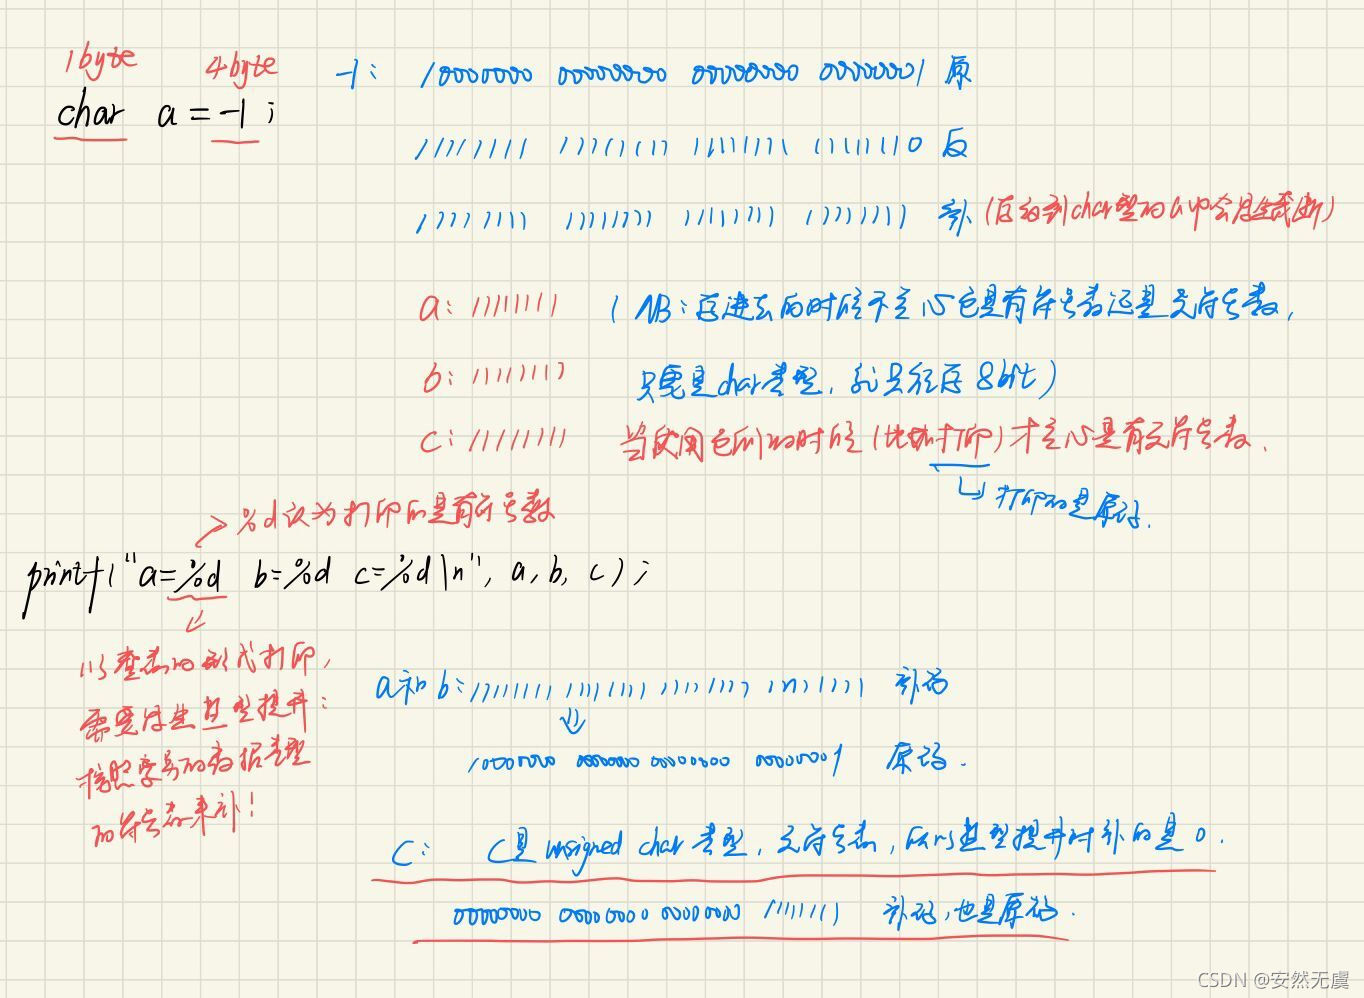 1byte 4byte
char a = -1 ;
-1: 10000000 00000000 00000000 00000001 原
11111111 11111111 11111111 11111110 反
11111111 11111111 11111111 11111111 补 (存的到char型的a中会发生截断)
a: 11111111 ( NB: 存进去的时候不关心它是有符号数还是无符号数,
b: 11111111 只要是char类型, 就只能存 8bit )
c: 11111111 当使用它们的时候 (比如打印) 才关心是有无符号数.
打印的是原码.
%d认为打印的是有符号数
printf("a=%d b=%d c=%d\n", a, b, c) ;
以整数的形式打印,
需要发生整型提升:
按照变量的数据类型
的符号位来补!
a和b: 11111111 11111111 11111111 11111111 补码
10000000 00000000 00000000 00000001 原码.
C: C是 unsigned char 类型, 无符号数, 所以整型提升时补的是 0.
00000000 00000000 00000000 11111111 补码, 也是原码.
CSDN @安然无虞